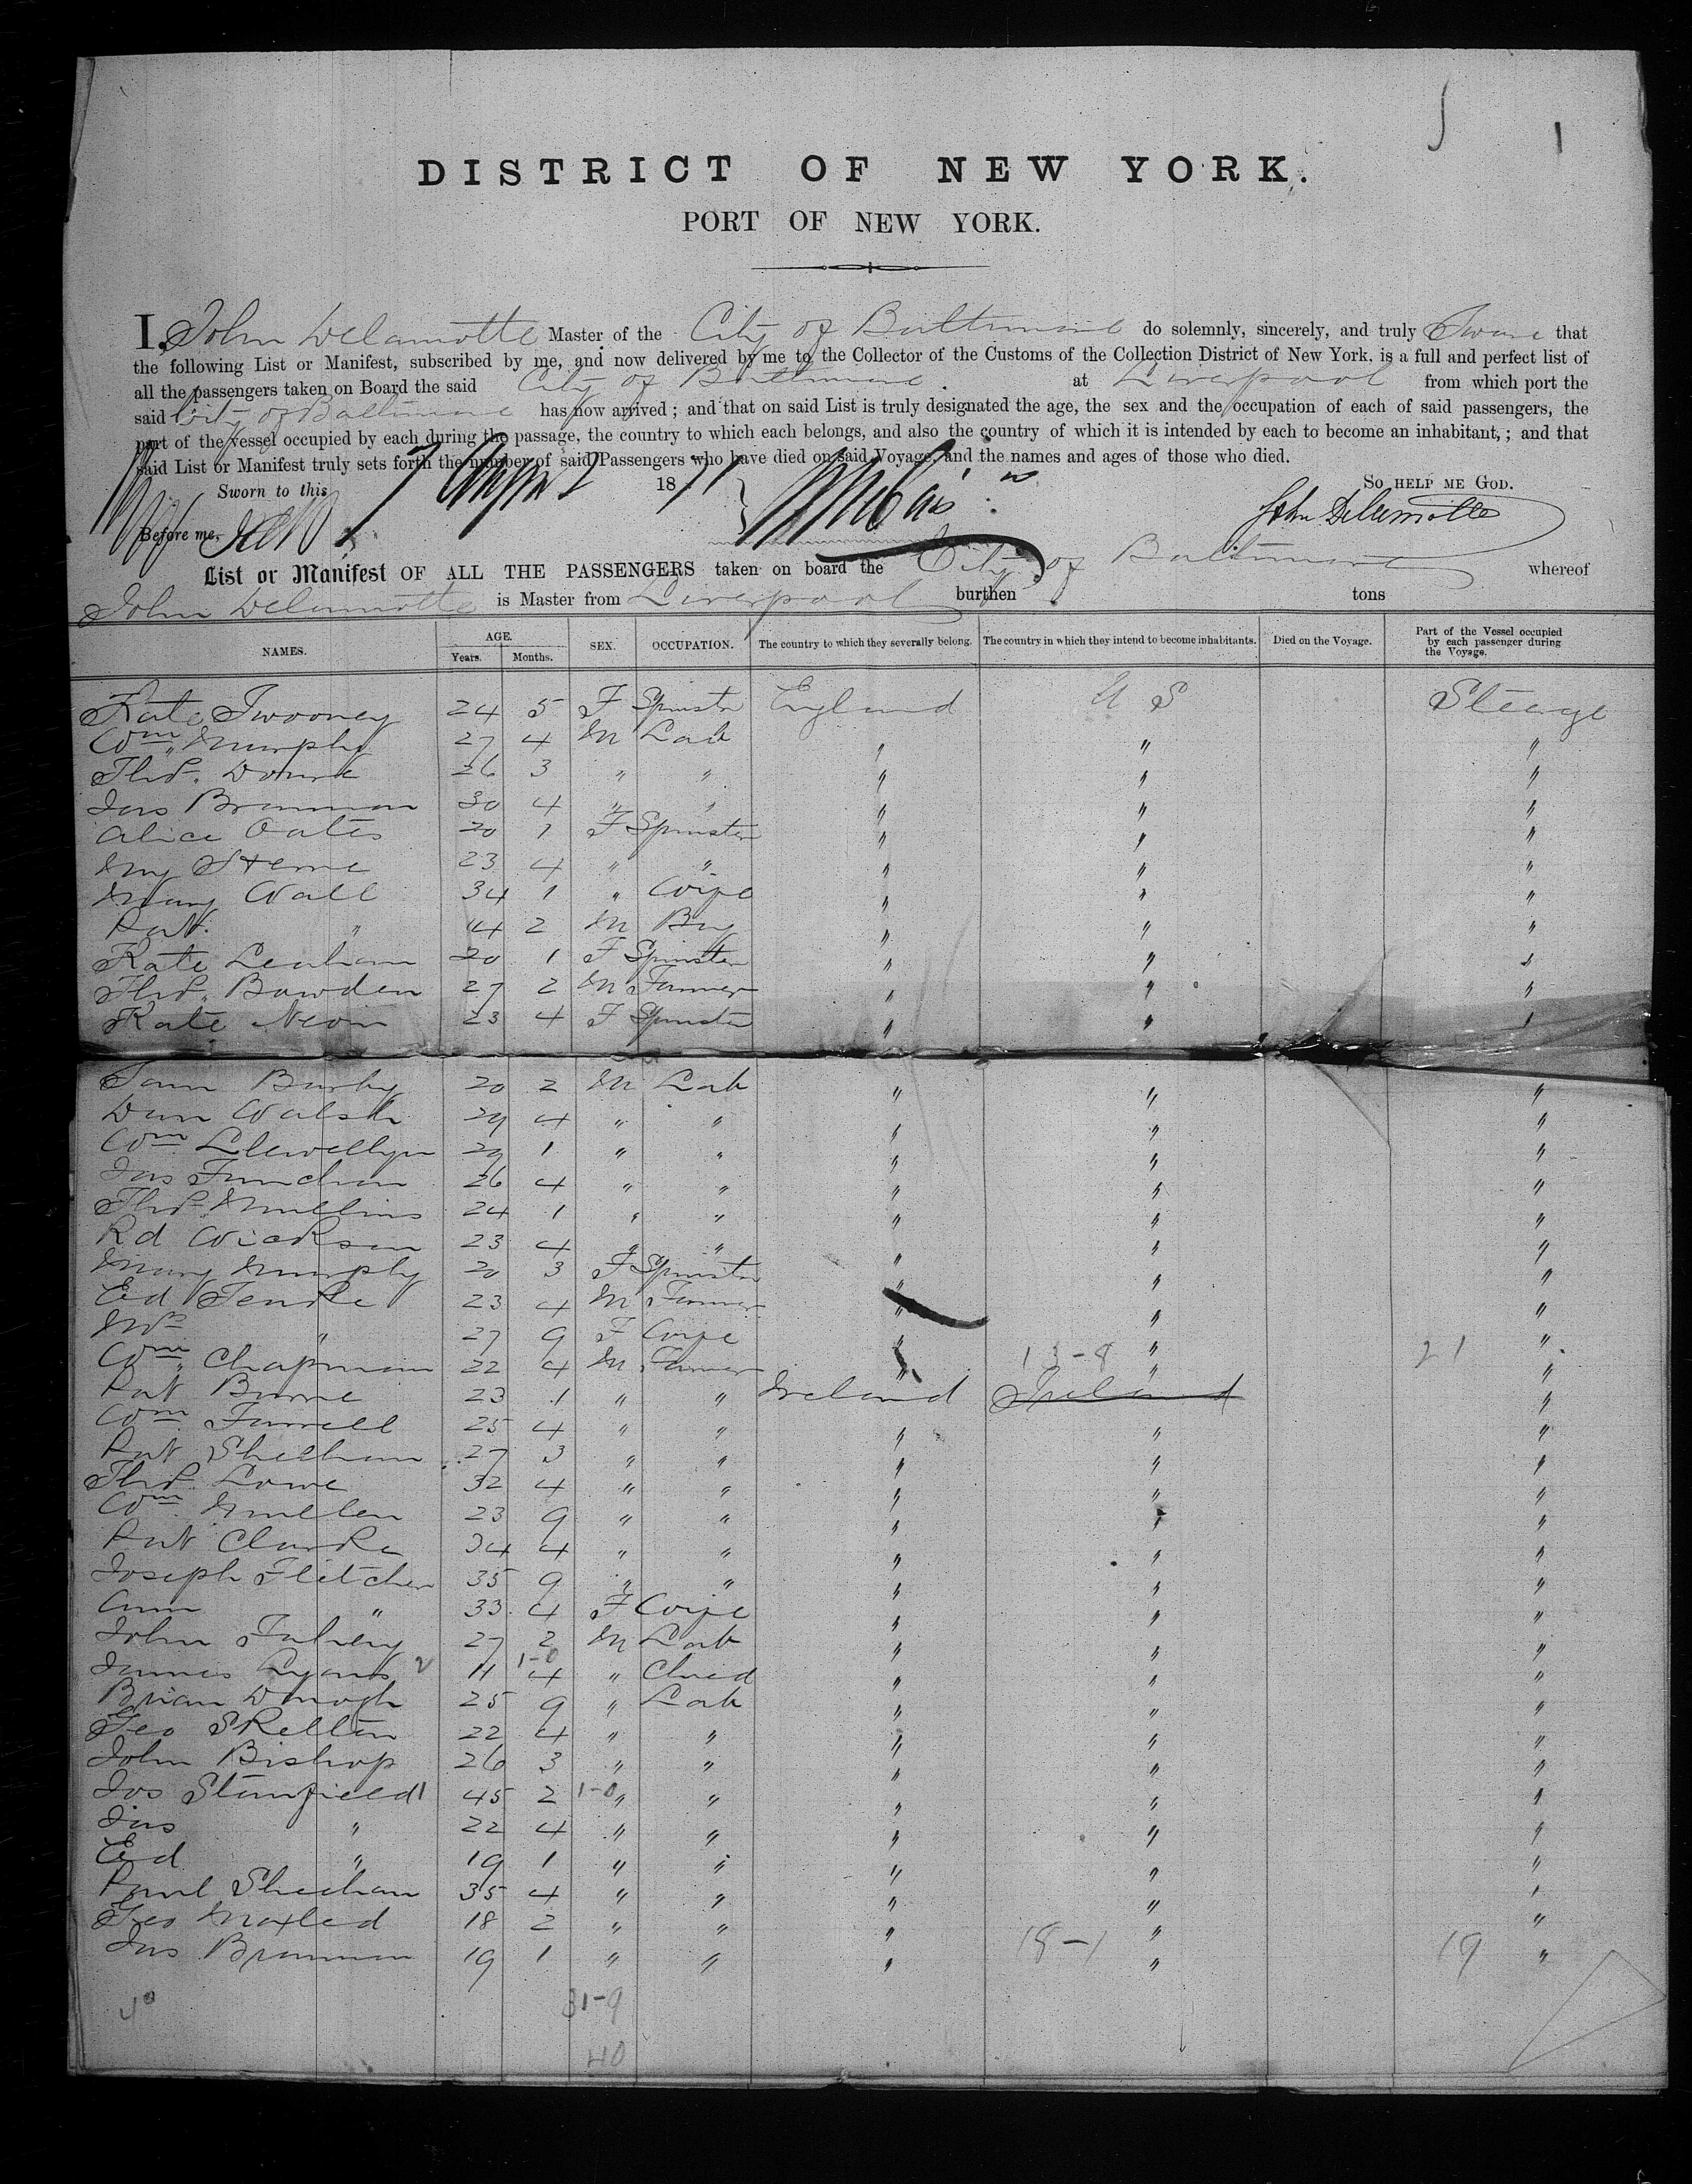 1
DISTRICT OF NEW YORK.
PORT OF NEW YORK.
I, John Delamotte Master of the City of Baltimore do solemnly, sincerely, and truly Swear that
the following List or Manifest, subscribed by me, and now delivered by me to the Collector of the Customs of the Collection District of New York. is a full and perfect list of
all the passengers taken on Board the said City of Baltimore. at Liverpool from which port the
said City of Baltimore has now arrived; and that on said List is truly designated the age, the sex and the occupation of each of said passengers, the
part of the vessel occupied by each during the passage, the country to which each belongs, and also the country of which it is intended by each to become an inhabitant,; and that
said List or Manifest truly sets forth the number of said Passengers who have died on said Voyage, and the names and ages of those who died.
Sworn to this 7 August 1871 So HELP ME GOD.
Before me, John Delamotte
List or Manifest OF ALL THE PASSENGERS taken on board the City of Baltimore whereof
John Delamotte is Master from Liverpool burthen tons
NAMES. AGE. Years. Months. SEX. OCCUPATION. The country to which they severally belong. The country in which they intend to become inhabitants. Died on the Voyage. Part of the Vessel occupied by each passenger during the Voyage.
Kate Twooney 24 5 F Spinster England U S Steage
Wm Murphy 27 4 M Lab " " "
Thos. 26 3 " " " " "
Jas Brannan 30 4 " " " " "
Alice Oates 20 1 F Spinster " " "
My Sterne 23 4 " " " " "
Mary Wall 34 1 " Wife " " "
Pat. " 14 2 M Boy " " "
Kate Leaham 20 1 F Spinster " " "
Thos. Bowden 27 2 M Farmer " " "
Kate Neon 23 4 F Spinster " " "
Burby 20 2 M Lab " " "
Dan Walsh 29 4 " " " " "
Wm Llewellyn 29 1 " " " " "
Jas Funchion 26 4 " " " " "
Thos. Mullins 24 1 " " " " "
Rd Wickson 23 4 " " " " "
Mary Murphy 20 3 F Spinster " " "
Ed Tenke 23 4 M Farmer " " "
Mrs " 27 9 F Wife " " "
Wm Chapman 22 4 M Farmer " 13-8 " 21 "
Pat Burne 23 1 " " Ireland Ireland "
Wm Farrell 25 4 " " " " "
Pat Shelhan 27 3 " " " " "
Thos. Lowe 32 4 " " " " "
Wm Mullen 23 9 " " " " "
Pat Clarke 34 4 " " " " "
Joseph Fletcher 35 9 " " " " "
Ann " 33 4 F Wife " " "
John Fahey 27 2 M Lab " " "
James Lyons 2 11 1-0 4 " Chied " " "
Brian Donogh 25 9 " Lab " " "
Geo Skelton 22 4 " " " " "
John Bishop 26 3 " " " " "
Jos Stanfield 1 45 2 1-0 " " " " "
Jas " 22 4 " " " " "
Ed " 19 1 " " " " "
Paul Sheehan 35 4 " " " " "
Geo Maxled 18 2 " " " " "
Jas Brannan 19 1 " " " 18-1 " 19 "
31-9
40